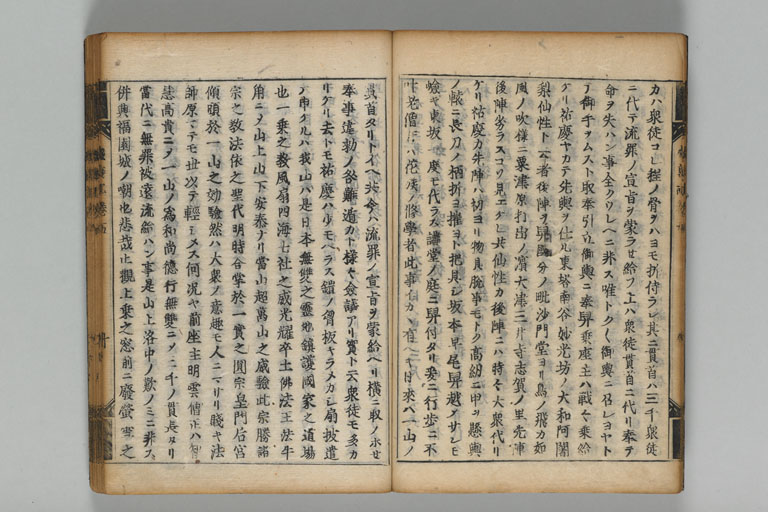 カハ衆徒コレ程ノ骨ヲハヨモ折侍ラレ其ニ貫首ハ三千衆徒
ニ代テ流罪ノ宣旨ヲ蒙ラセ給フ上ハ衆徒貫首ニ代リ奉テ
命ヲ失ハン事全クウレヘニ非ス唯トク〱御輿ニ召レヨヤト
テ御手ヲムスト取奉引立御輿ニ奉舁乗座主ハ戦々乗給
ケリ祐慶ヤカテ先輿ヲ仕ル東塔南谷妙光坊ノ大和阿闍
梨仙性ト云者後陣ヲ舁國分ノ毗沙門堂ヨリ鳥ノ飛カ如
風ノ吹様ニ粟津原打出ノ濱大津三井寺志賀ノ里先陣
後陣劣ラスコソ見エケレ共仙性カ後陣ニハ時々大衆代リ
ケリ祐慶カ先陣ハ切ヨリ物具脱事モナク高紐ニ甲ヲ懸輿
ノ轅ニ長刀ノ柄折ヨ摧ヨト把具シ坂本早尾舁越サシモ
嶮キ東坂一度モ代ラス講堂ノ庭ニ舁付タリ爰ニ行歩ニ不
叶老僧
花族ノ修學者此事イカヽ有ヘキ日來ハ一山ノ
貫首タリトイヘ共今ハ流罪ノ宣旨ヲ蒙給ヘリ横ニ取ノホセ
奉事違勅ノ咎難遁カト様々僉議アリ實ト云衆徒モ多カ
リケリ去トモ祐慶ハ少モヘラス鎧ノ胃板キラメカシ扇披遣
テ申ケルハ我山ハ是日本無雙之靈地鎮護國家之道場
也一乗之教風扇四海七社之威光耀卒土佛法王法牛
角ニメ山上山下安泰ナリ當山超萬山之威驗此宗勝諸
宗之教法依之聖代明時合掌於一實之圓宗皇門后宮
傾頭於一山之効驗然ハ大衆ノ意趣モ人ニコナリ賤キ法
師原マテモ世以テ輕シメス何況ヤ前座主明雲僧正ハ智
慧高貴ニメ一山ノ高和尚德行無雙ニメ三千ノ貫長タリ
當代ニ無罪被遠流給ハン事是山上洛中ノ歎ノミニ非ス
併興福園城ノ嘲也悲哉止觀上乗之窓前ニ廢螢雪之